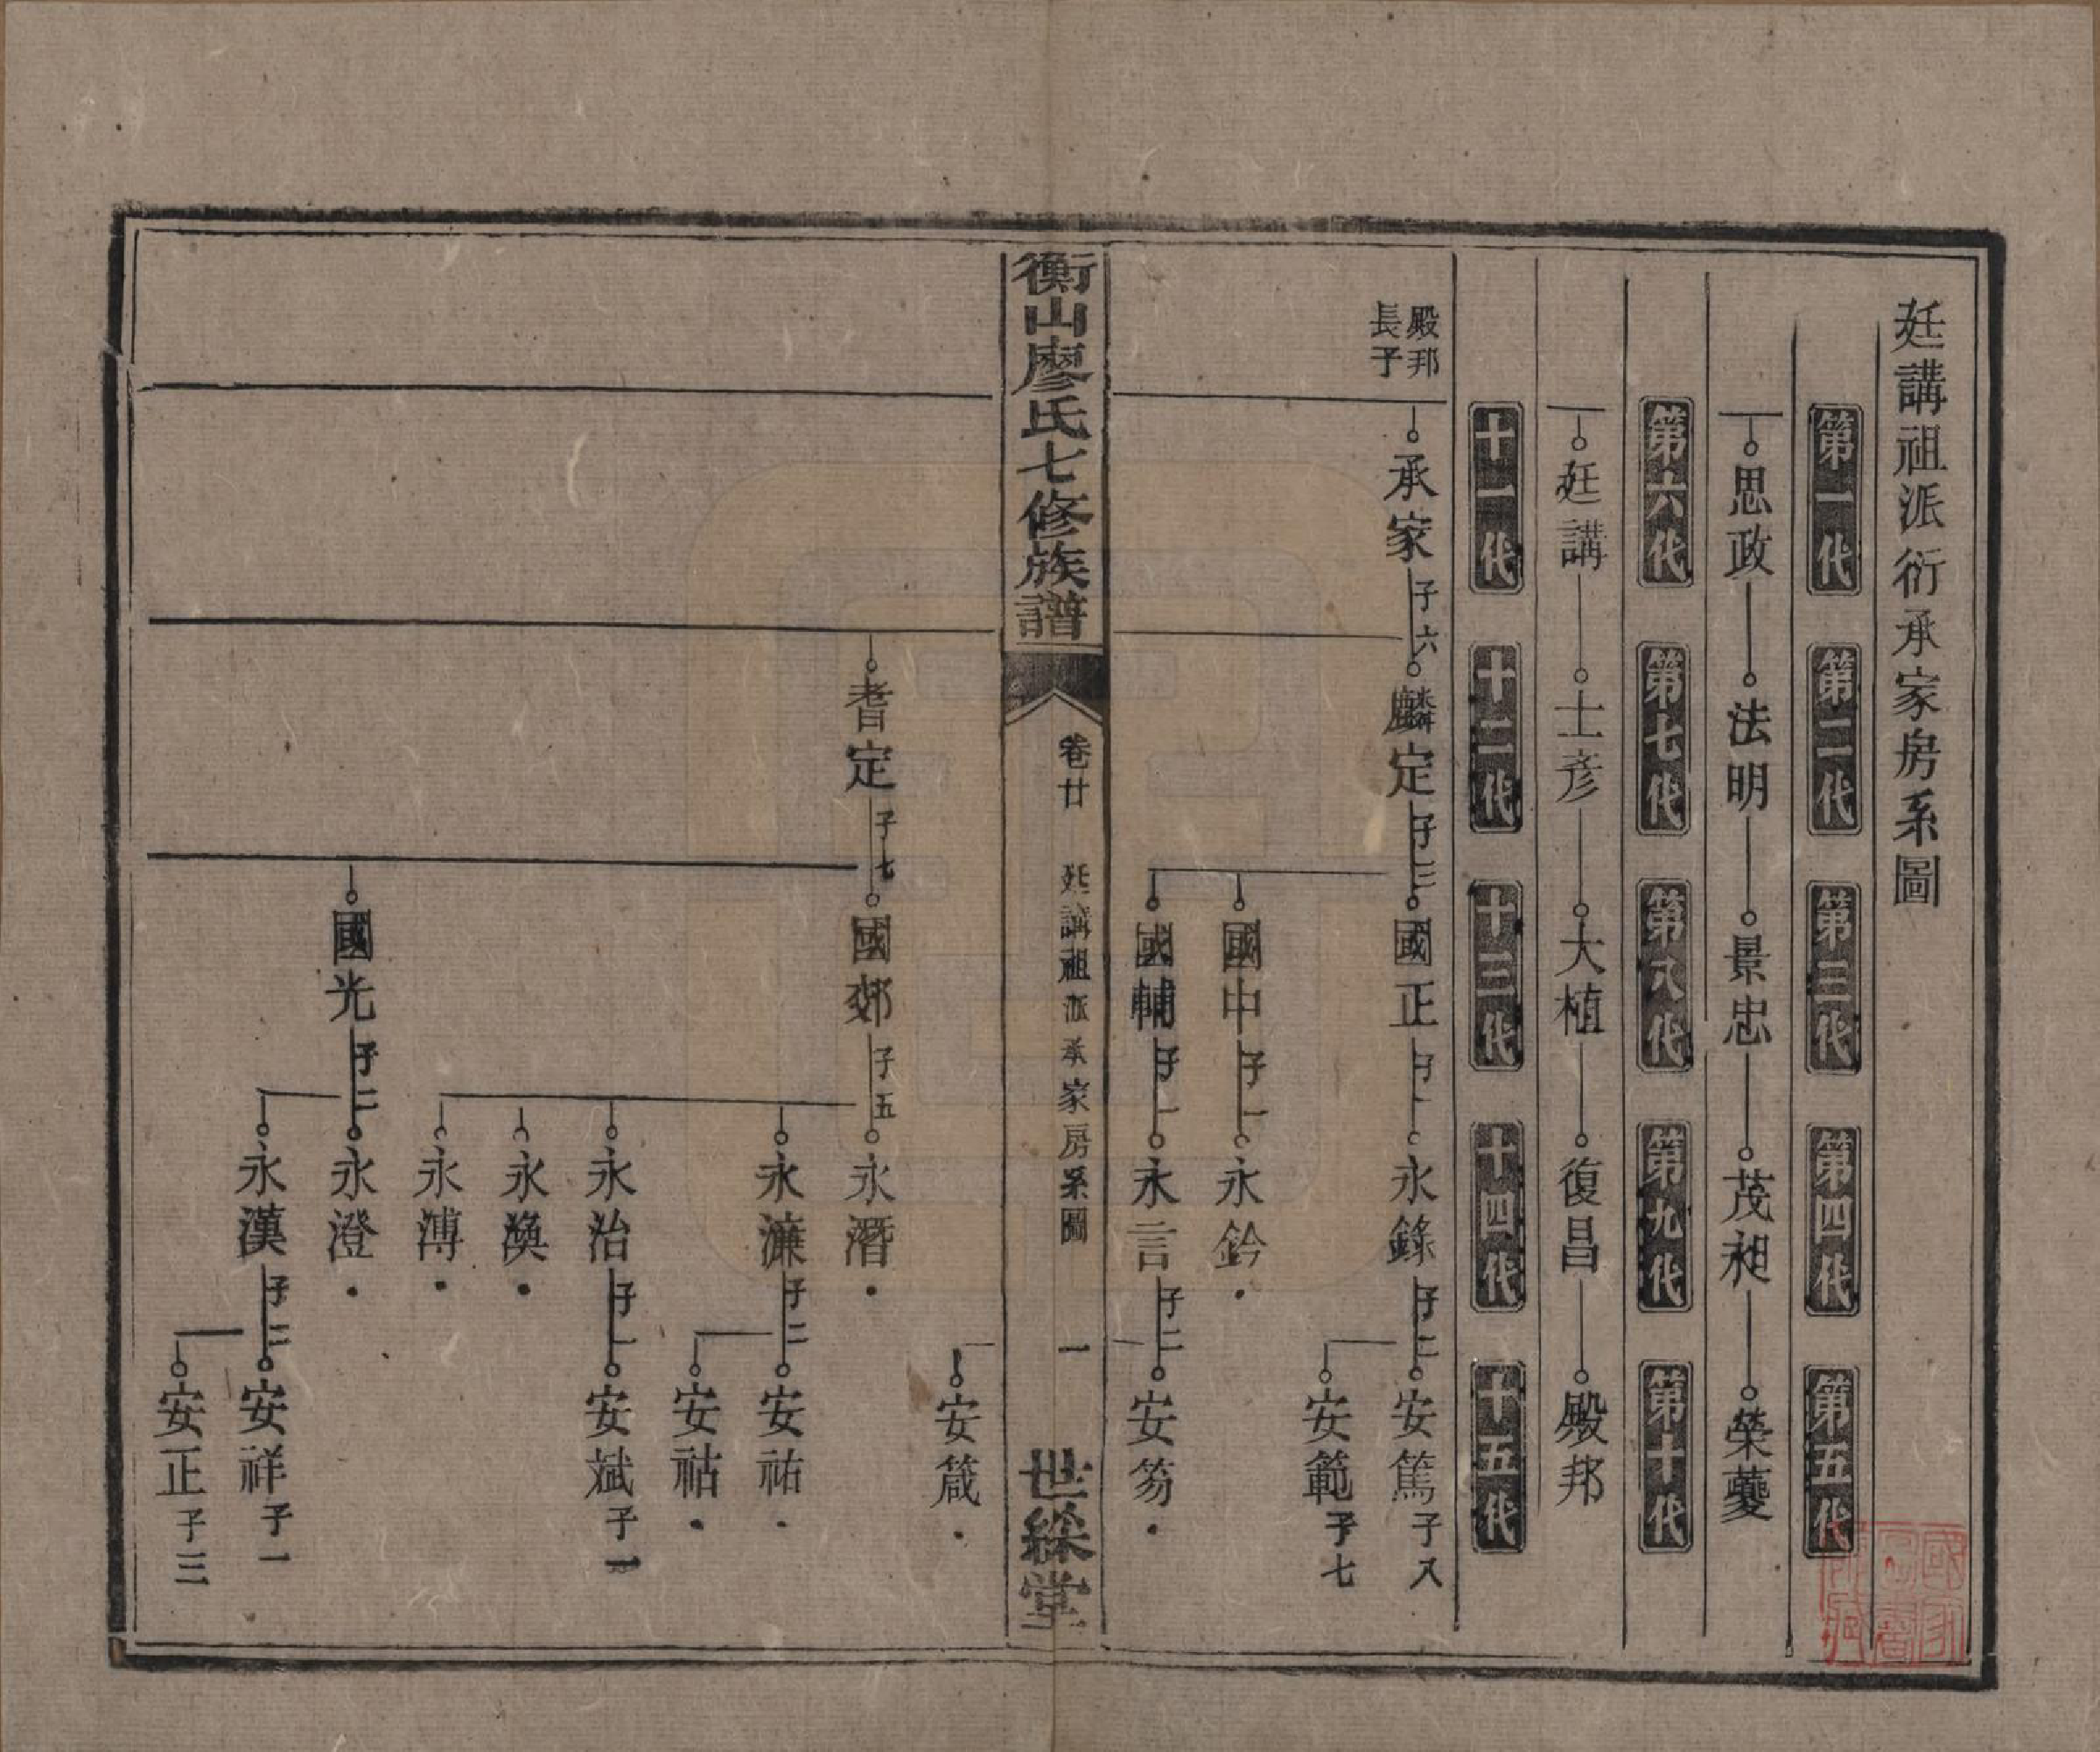 廷講祖派衍承家房系圖
第一代 第二代 第三代 第四代 第五代
思政 法明 景忠 茂昶 榮夔
第六代 第七代 第八代 第九代 第十代
廷講 士彦 大植 復昌 殿邦
十一代 十二代 十三代 十四代 十五代
殿邦
長子
承家 子六 麟定 子三 國正 子一 永錄 子二 安篤 子八
安範 子七
國中 子一 永鈐
國輔 子一 永言 子二 安笏
衡山廖氏七修族譜
卷廿 廷講祖派承家房系圖 一
世綵堂
安箴
耆定 子七 國郊 子五 永潛
永濂 子二 安祐
安祜
永治 子一 安斌 子一
永渙
永溥
國光 子二 永澄
永漢 子二 安祥 子一
安正 子三